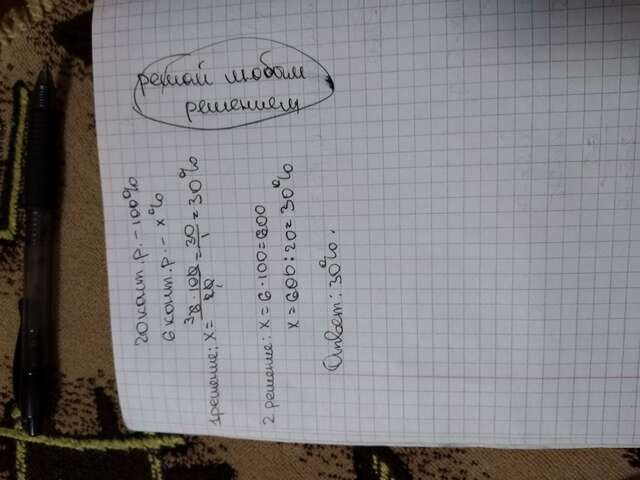 решай любым
решением
20 конт.р. - 100%
6 конт.р. - x%
1 решение: x = 6·100/20 = 30/1 = 30%
3
2 решение: x = 6·100 = 600
x = 600:20 = 30%
Ответ: 30%.